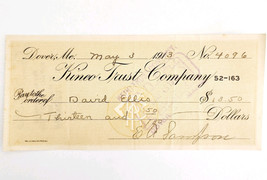 Dover, Me. May 3 1913 No. 4096
Kineo Trust Company 52-163
Pay to the order of David Ellis $13.50
Thirteen and 50 Dollars